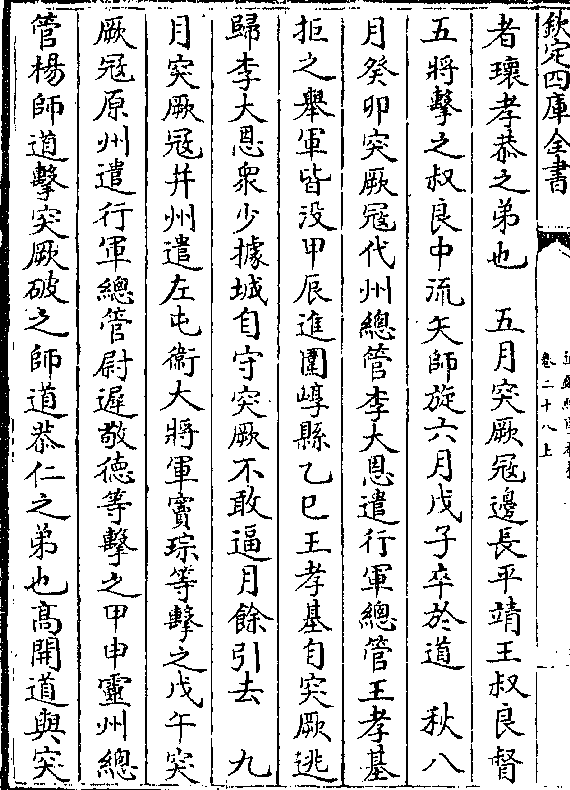 欽定四庫全書
卷二十八上
者瓌孝恭之弟也　五月突厥冦邊長平靖王叔良督
五將擊之叔良中流矢師旋六月戊子卒於道　秋八
月癸卯突厥冦代州總管李大恩遣行軍總管王孝基
拒之舉軍皆没甲辰進圍崞縣乙巳王孝基自突厥逃
歸李大恩衆少據城自守突厥不敢逼月餘引去　九
月突厥冦并州遣左屯衛大將軍竇琮等擊之戊午突
厥冦原州遣行軍總管尉遲敬德等擊之甲申靈州總
管楊師道擊突厥破之師道恭仁之弟也高開道與突